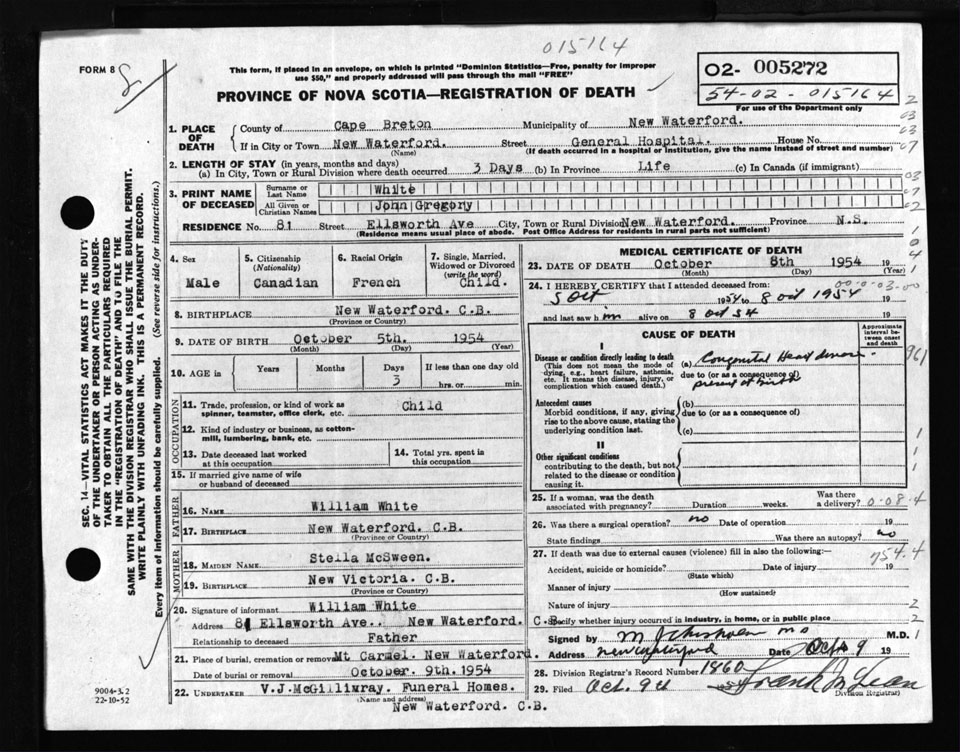 015164
FORM 8
This form, if placed in an envelope, on which is printed "Dominion Statistics—Free, penalty for improper
use $50," and properly addressed will pass through the mail "FREE"
02- 005272
54-02-015164
For use of the Department only
PROVINCE OF NOVA SCOTIA—REGISTRATION OF DEATH
1. PLACE OF DEATH
County of Cape Breton Municipality of New Waterford.
If in City or Town New Waterford. Street General Hospital. House No.
(Name) (If death occurred in a hospital or institution, give the name instead of street and number)
2. LENGTH OF STAY (in years, months and days)
(a) In City, Town or Rural Division where death occurred 3 Days (b) In Province Life (c) In Canada (if immigrant)
3. PRINT NAME OF DECEASED
Surname or Last Name White
All Given or Christian Names John Gregory
RESIDENCE No. 81 Street Ellsworth Ave City, Town or Rural Division New Waterford. Province N.S.
(Residence means usual place of abode. Post Office Address for residents in rural parts not sufficient)
4. Sex
Male
5. Citizenship
(Nationality)
Canadian
6. Racial Origin
French
7. Single, Married,
Widowed or Divorced
(write the word)
Child.
8. BIRTHPLACE New Waterford. C.B.
(Province or Country)
9. DATE OF BIRTH October 5th. 1954
(Month) (Day) (Year)
10. AGE in Years Months Days If less than one day old
3 hrs. or min.
OCCUPATION
11. Trade, profession, or kind of work as
spinner, teamster, office clerk, etc. Child
12. Kind of industry or business, as cotton-
mill, lumbering, bank, etc.
13. Date deceased last worked
at this occupation
14. Total yrs. spent in
this occupation
15. If married give name of wife
or husband of deceased
FATHER
16. NAME William White
17. BIRTHPLACE New Waterford. C.B.
(Province or Country)
MOTHER
18. MAIDEN NAME Stella McSween.
19. BIRTHPLACE New Victoria. C.B.
(Province or Country)
20. Signature of informant William White
Address 81 Ellsworth Ave.. New Waterford. C.B.
Relationship to deceased Father
21. Place of burial, cremation or removal Mt Carmel. New Waterford.
Date of burial or removal October. 9th.1954
22. UNDERTAKER V.J.McGillivray. Funeral Homes.
(Name and address)
New Waterford. C.B.
MEDICAL CERTIFICATE OF DEATH
23. DATE OF DEATH October 8th 1954 19
(Month) (Day) (Year)
24. I HEREBY CERTIFY that I attended deceased from:
00-0-03-00
5 Oct 1954 to 8 Oct 1954 19
and last saw him alive on 8 Oct 54 19
CAUSE OF DEATH
Approximate
interval be-
tween onset
and death
I
Disease or condition directly leading to death
(This does not mean the mode of
dying, e.g., heart failure, asthenia,
etc. It means the disease, injury, or
complication which caused death.)
(a) Congenital Heart disease.
due to (or as a consequence of)
present at birth
Antecedent causes
Morbid conditions, if any, giving
rise to the above cause, stating the
underlying condition last.
(b)
due to (or as a consequence of)
(c)
II
Other significant conditions
contributing to the death, but not
related to the disease or condition
causing it.
25. If a woman, was the death
associated with pregnancy? Duration weeks. Was there
a delivery? 0-08-4
26. Was there a surgical operation? no Date of operation 19
State findings Was there an autopsy? no
27. If death was due to external causes (violence) fill in also the following:—
754.4
Accident, suicide or homicide? Date of injury 19
(State which)
Manner of injury
(How sustained)
Nature of injury
Specify whether injury occurred in industry, in home, or in public place
Signed by M J Chisholm MD M.D.
Address New Waterford Date Oct 9 19
28. Division Registrar's Record Number 1860
29. Filed Oct. 9th
Division Registrar
SEC. 14—VITAL STATISTICS ACT MAKES IT THE DUTY
OF THE UNDERTAKER OR PERSON ACTING AS UNDER-
TAKER TO OBTAIN ALL THE PARTICULARS REQUIRED
IN THE "REGISTRATION OF DEATH" AND TO FILE THE
SAME WITH THE DIVISION REGISTRAR WHO SHALL ISSUE THE BURIAL PERMIT.
WRITE PLAINLY WITH UNFADING INK. THIS IS A PERMANENT RECORD.
Every item of information should be carefully supplied. (See reverse side for instructions.)
9004-3.2
22-10-52